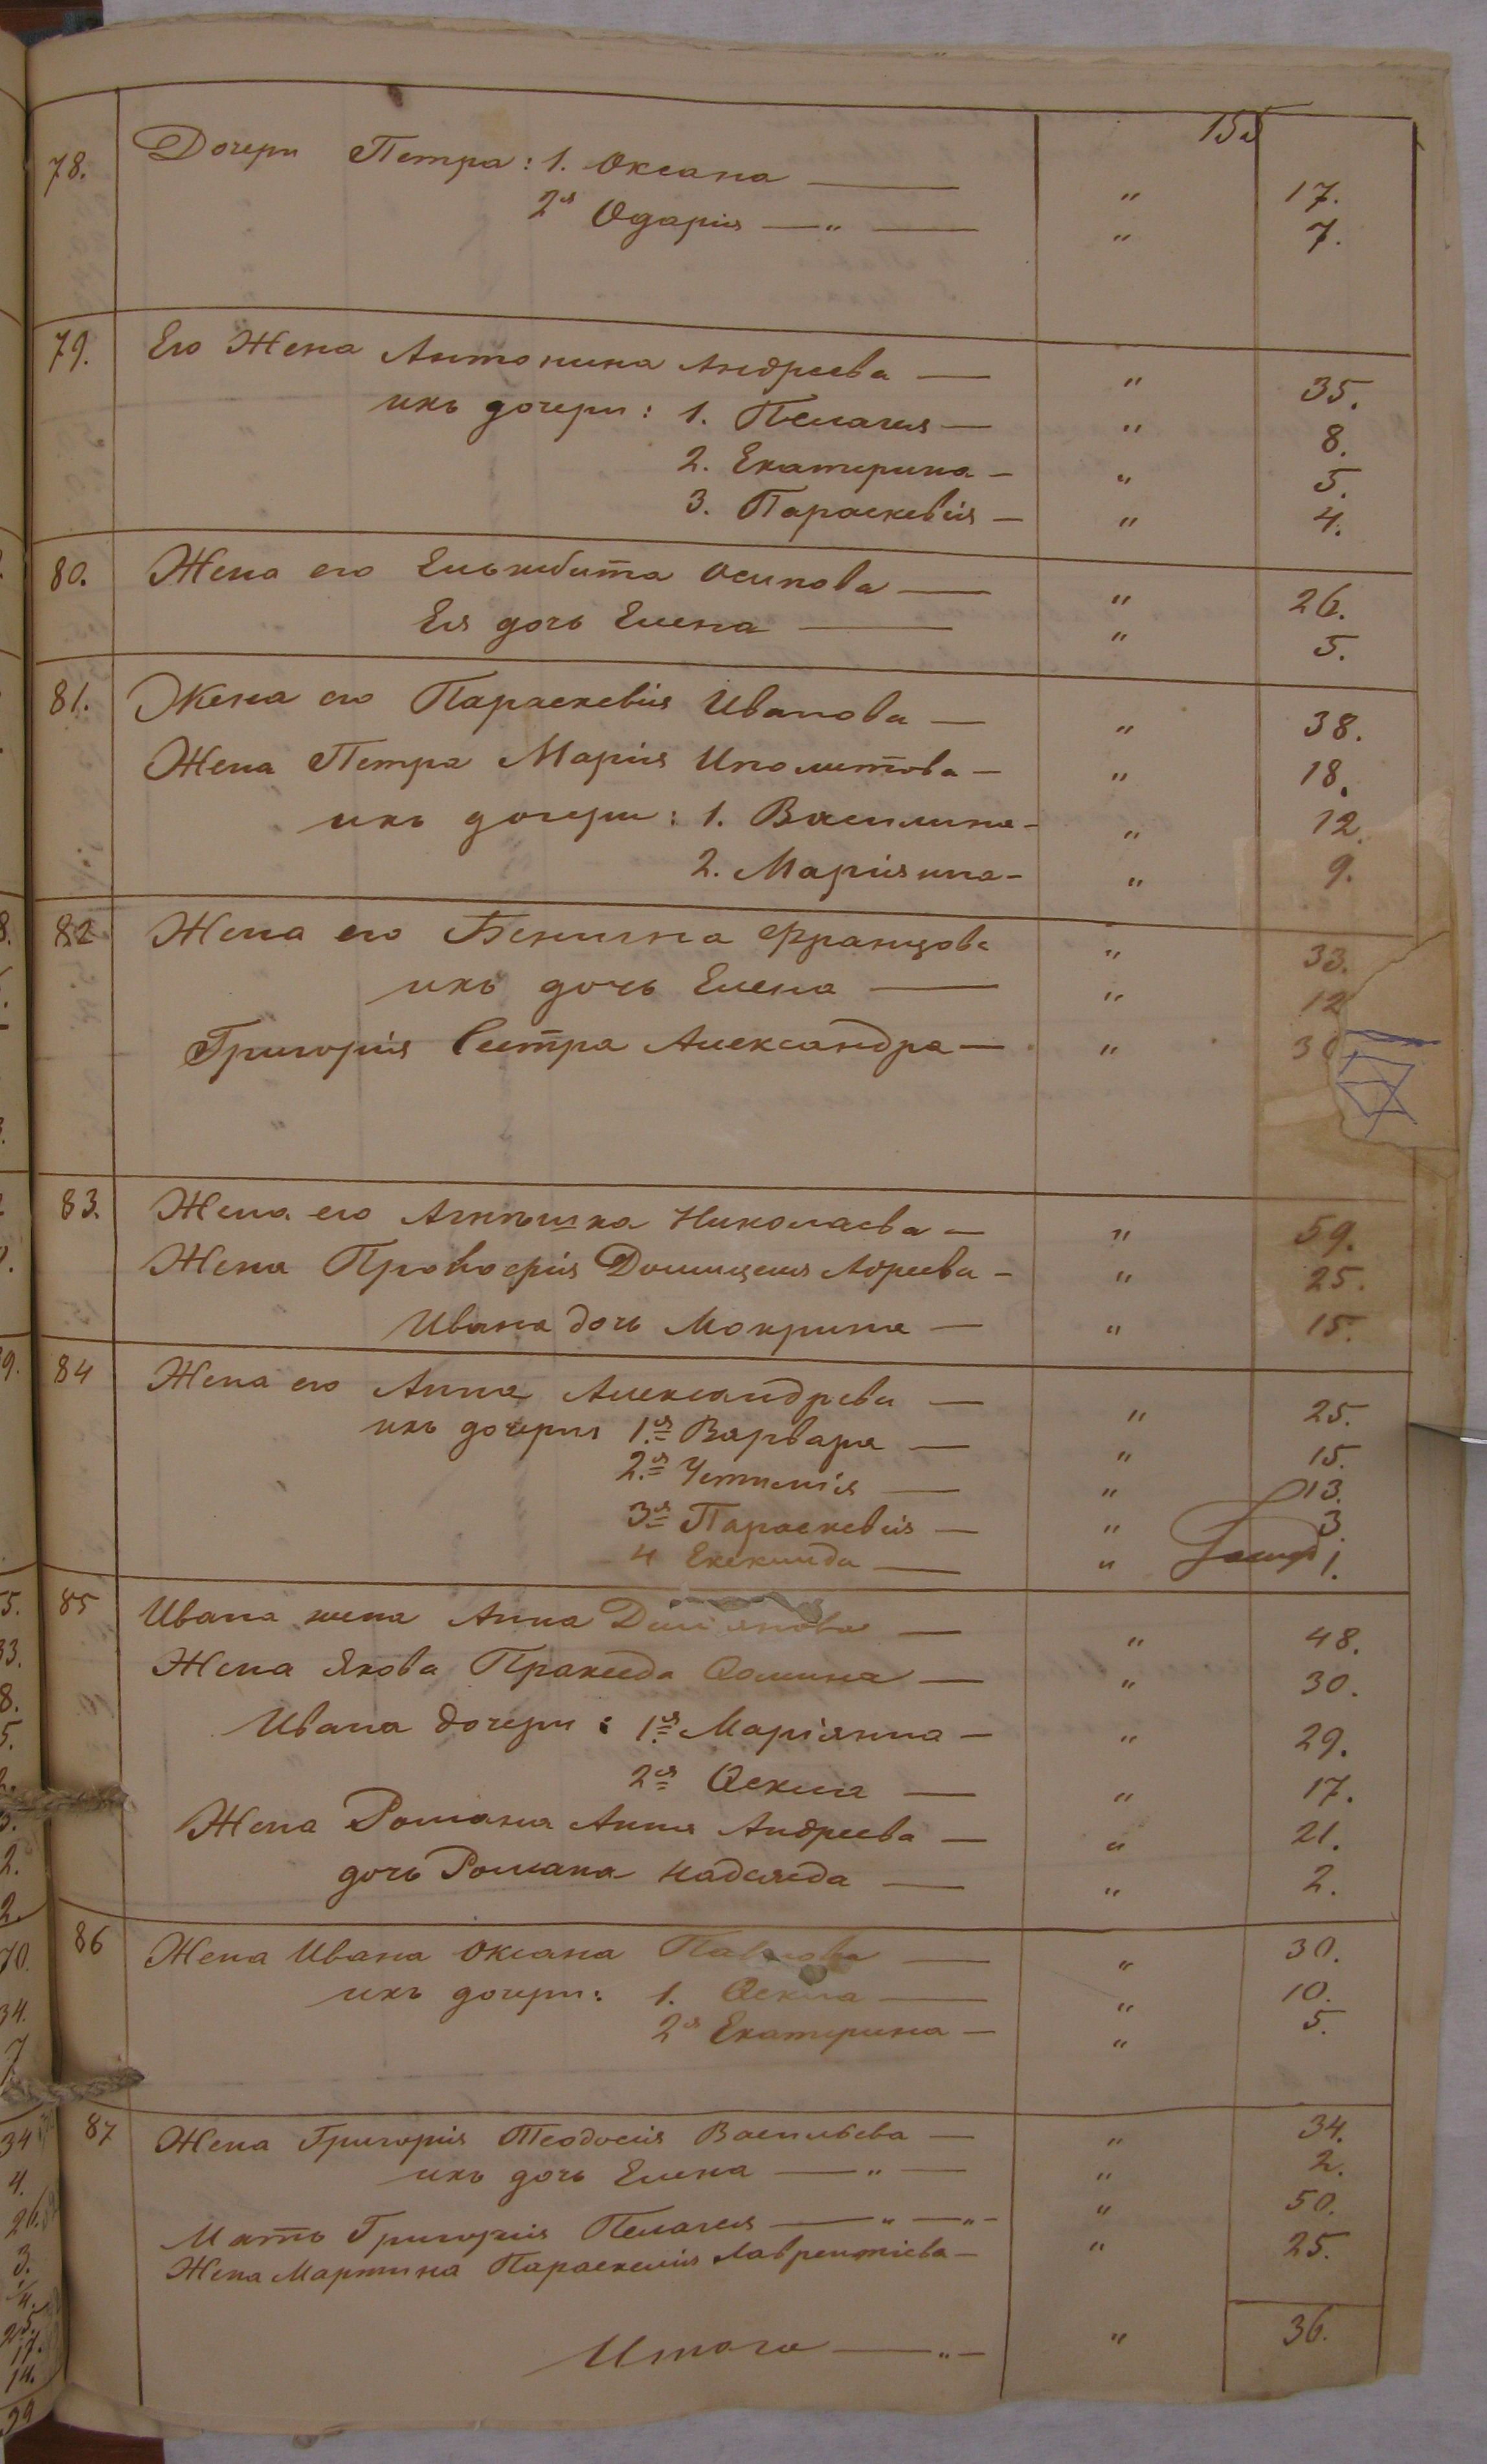 155
78. Дочери Петра: 1. Оксана — " 17.
2я Одарія — " — " 7.
79. Его Жена Антонина Андреева — " 35.
ихъ дочери: 1. Пелагея — " 8.
2. Екатерина — " 5.
3. Параскевія — " 4.
80. Жена его Ельжбита Осипова — " 26.
Ея дочь Елена — " 5.
81. Жена его Параскевія Иванова — " 38.
Жена Петра Марія Иполитова — " 18.
ихъ дочери: 1. Василина — " 12.
2. Маріянна — " 9.
82 Жена его Бенигна Францова " 33.
ихъ дочь Елена — " 12
Григорія Сестра Александра — " 30
83. Жена его Николаева — " 59.
Жена Домицеля " 25.
Ивана дочь Мокрина — " 15.
84 Жена его Анна Александрева — " 25.
ихъ дочери 1.я Варвара — " 15.
2.я — " 13.
3я Параскевія — " 3.
4 — " 1.
85 Ивана жена Анна — " 48.
Жена Якова Пракседа Ѳомина — " 30.
Ивана дочери: 1.я Маріянна — " 29.
2я Ѳекла — " 17.
Жена Романа Анна Андреева — " 21.
дочь Романа Надежда — " 2.
86 Жена Ивана Оксана Павлова — " 30.
ихъ дочери: 1. Ѳекла — " 10.
2я Екатерина — " 5.
87 Жена Григорія Теодосія Васильева — " 34.
ихъ дочь Елена — " — " 2.
Мать Григорія Пелагея — " — " — " 50.
Жена Мартина Лаврентіева — " 25.
Итого — " — " 36.